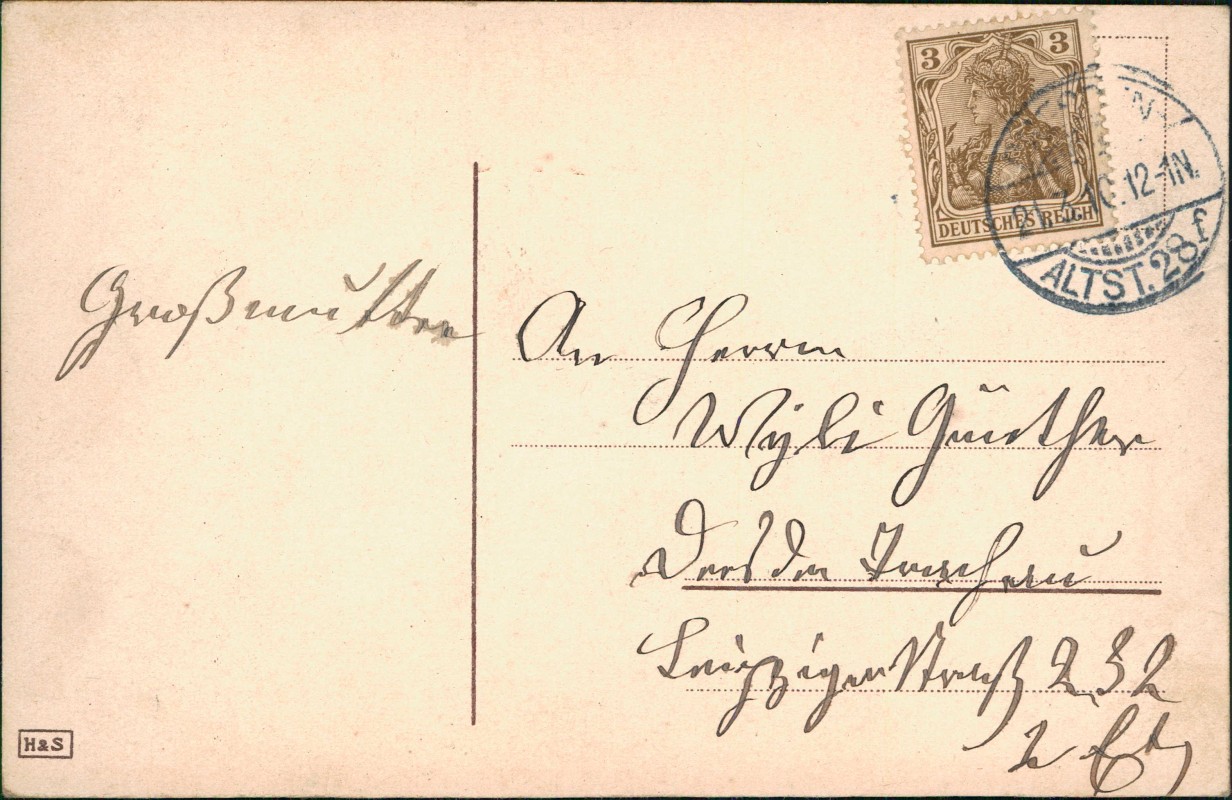 3 3
DEUTSCHES REICH
21. 10. 12-1N.
ALTST. 28 f
Großmutter
An Herrn
Wyli Günther
Dresden Trachau
Leipziger Straß 232
2 Et
H&S